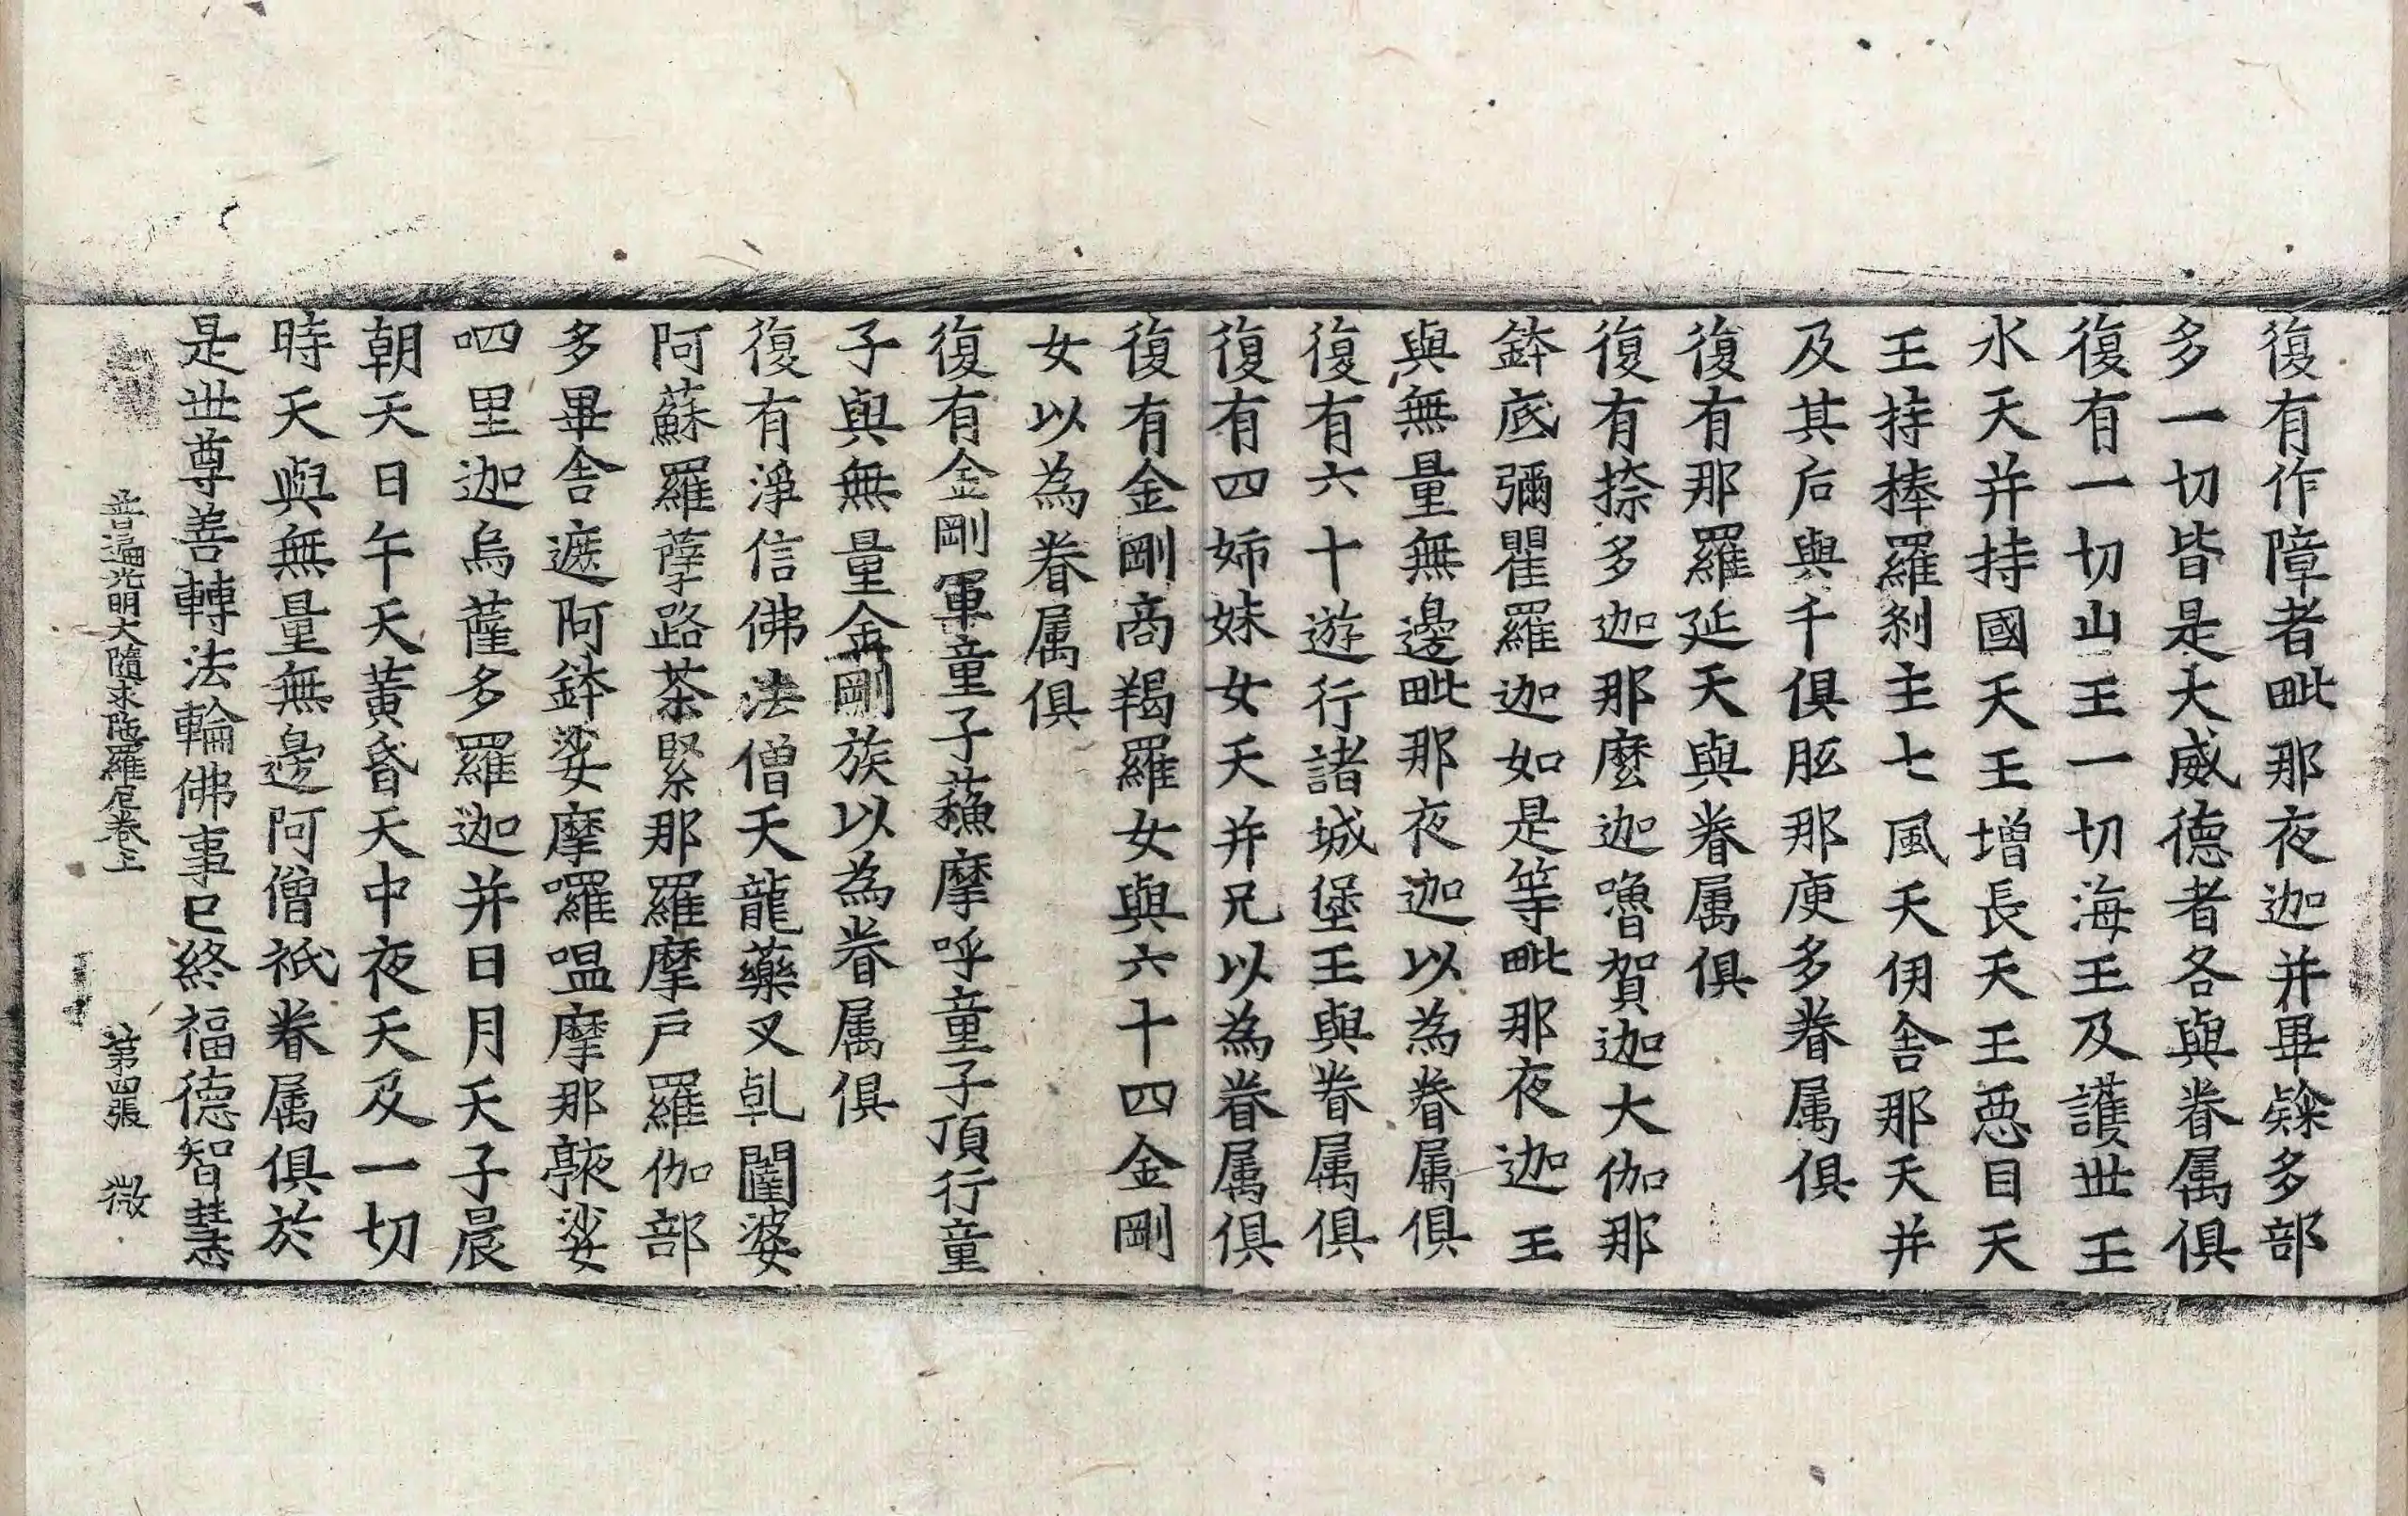 復有作障者毗那夜迦并畢㗚多部
多一切皆是大威德者各與眷属俱
復有一切山王一切海王及護世王
水天并持國天王增長天王惡目天
王持棒羅剎主七風天伊舎那天并
及其后與千俱胝那庾多眷属俱
復有那羅延天與眷属俱
復有捺多迦那麼迦嚕賀迦大伽那
鉢底彌瞿羅迦如是等毗那夜迦王
與無量無邊毗那夜迦以為眷属俱
復有六十遊行諸城堡王與眷属俱
復有四姉妹女天并兄以為眷属俱
復有金剛商羯羅女與六十四金剛
女以為眷属俱
復有金剛軍童子蘓摩呼童子頂行童
子與無量金剛族以為眷属俱
復有淨信佛法僧天龍藥叉乹闥婆
阿蘇羅孽路荼緊那羅摩戶羅伽部
多畢舎遮阿鉢娑摩囉嗢摩那㪍娑
呬里迦烏薩多羅迦并日月天子晨
朝天日午天黃昏天中夜天及一切
時天與無量無邊阿僧祇眷属俱於
是世尊善轉法輪佛事已終福德智慧
普遍光明大隨求陁羅尼卷上 第四張 微